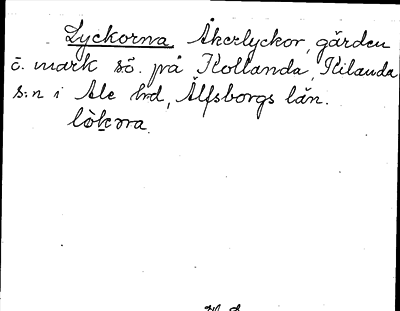 Lyckorna Åkerlyckor, gärden
o. mark sö. på Kollanda, Kilanda
s:n i Ale hrd, Älfsborgs län.